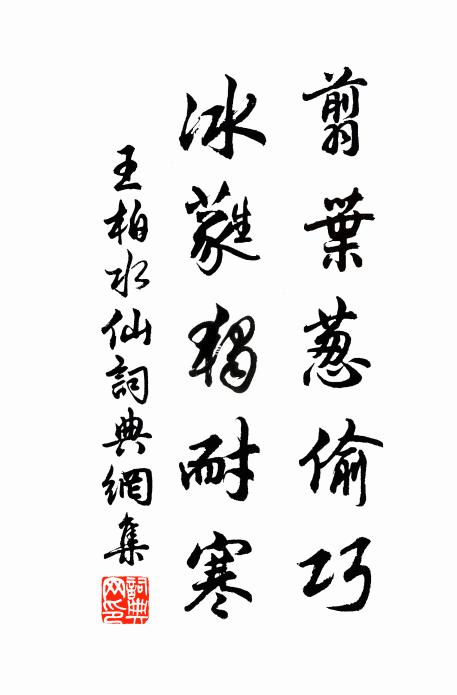 翦葉蔥偷巧
冰蕤獨耐寒
王柏水仙詞典網集
詞典網印